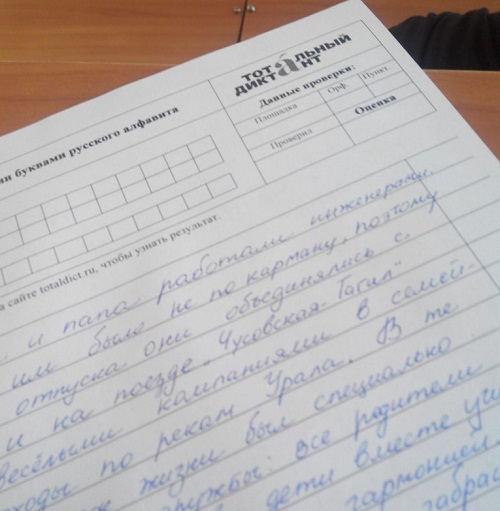 тотальный
диктант
Данные проверки:
Площадка
Орф.
Пункт.
Проверил
Оценка
и буквами русского алфавита
а сайте totaldict.ru, чтобы узнать результат.
и папа работали инженерами.
им было не по карману, поэтому
отпуска они объединялись с
и на поезде „Чусовская-Тагил"
весёлыми кампаниями в семей-
по рекам Урала. В те
жизни был специально
все родители
дети вместе
гармонией